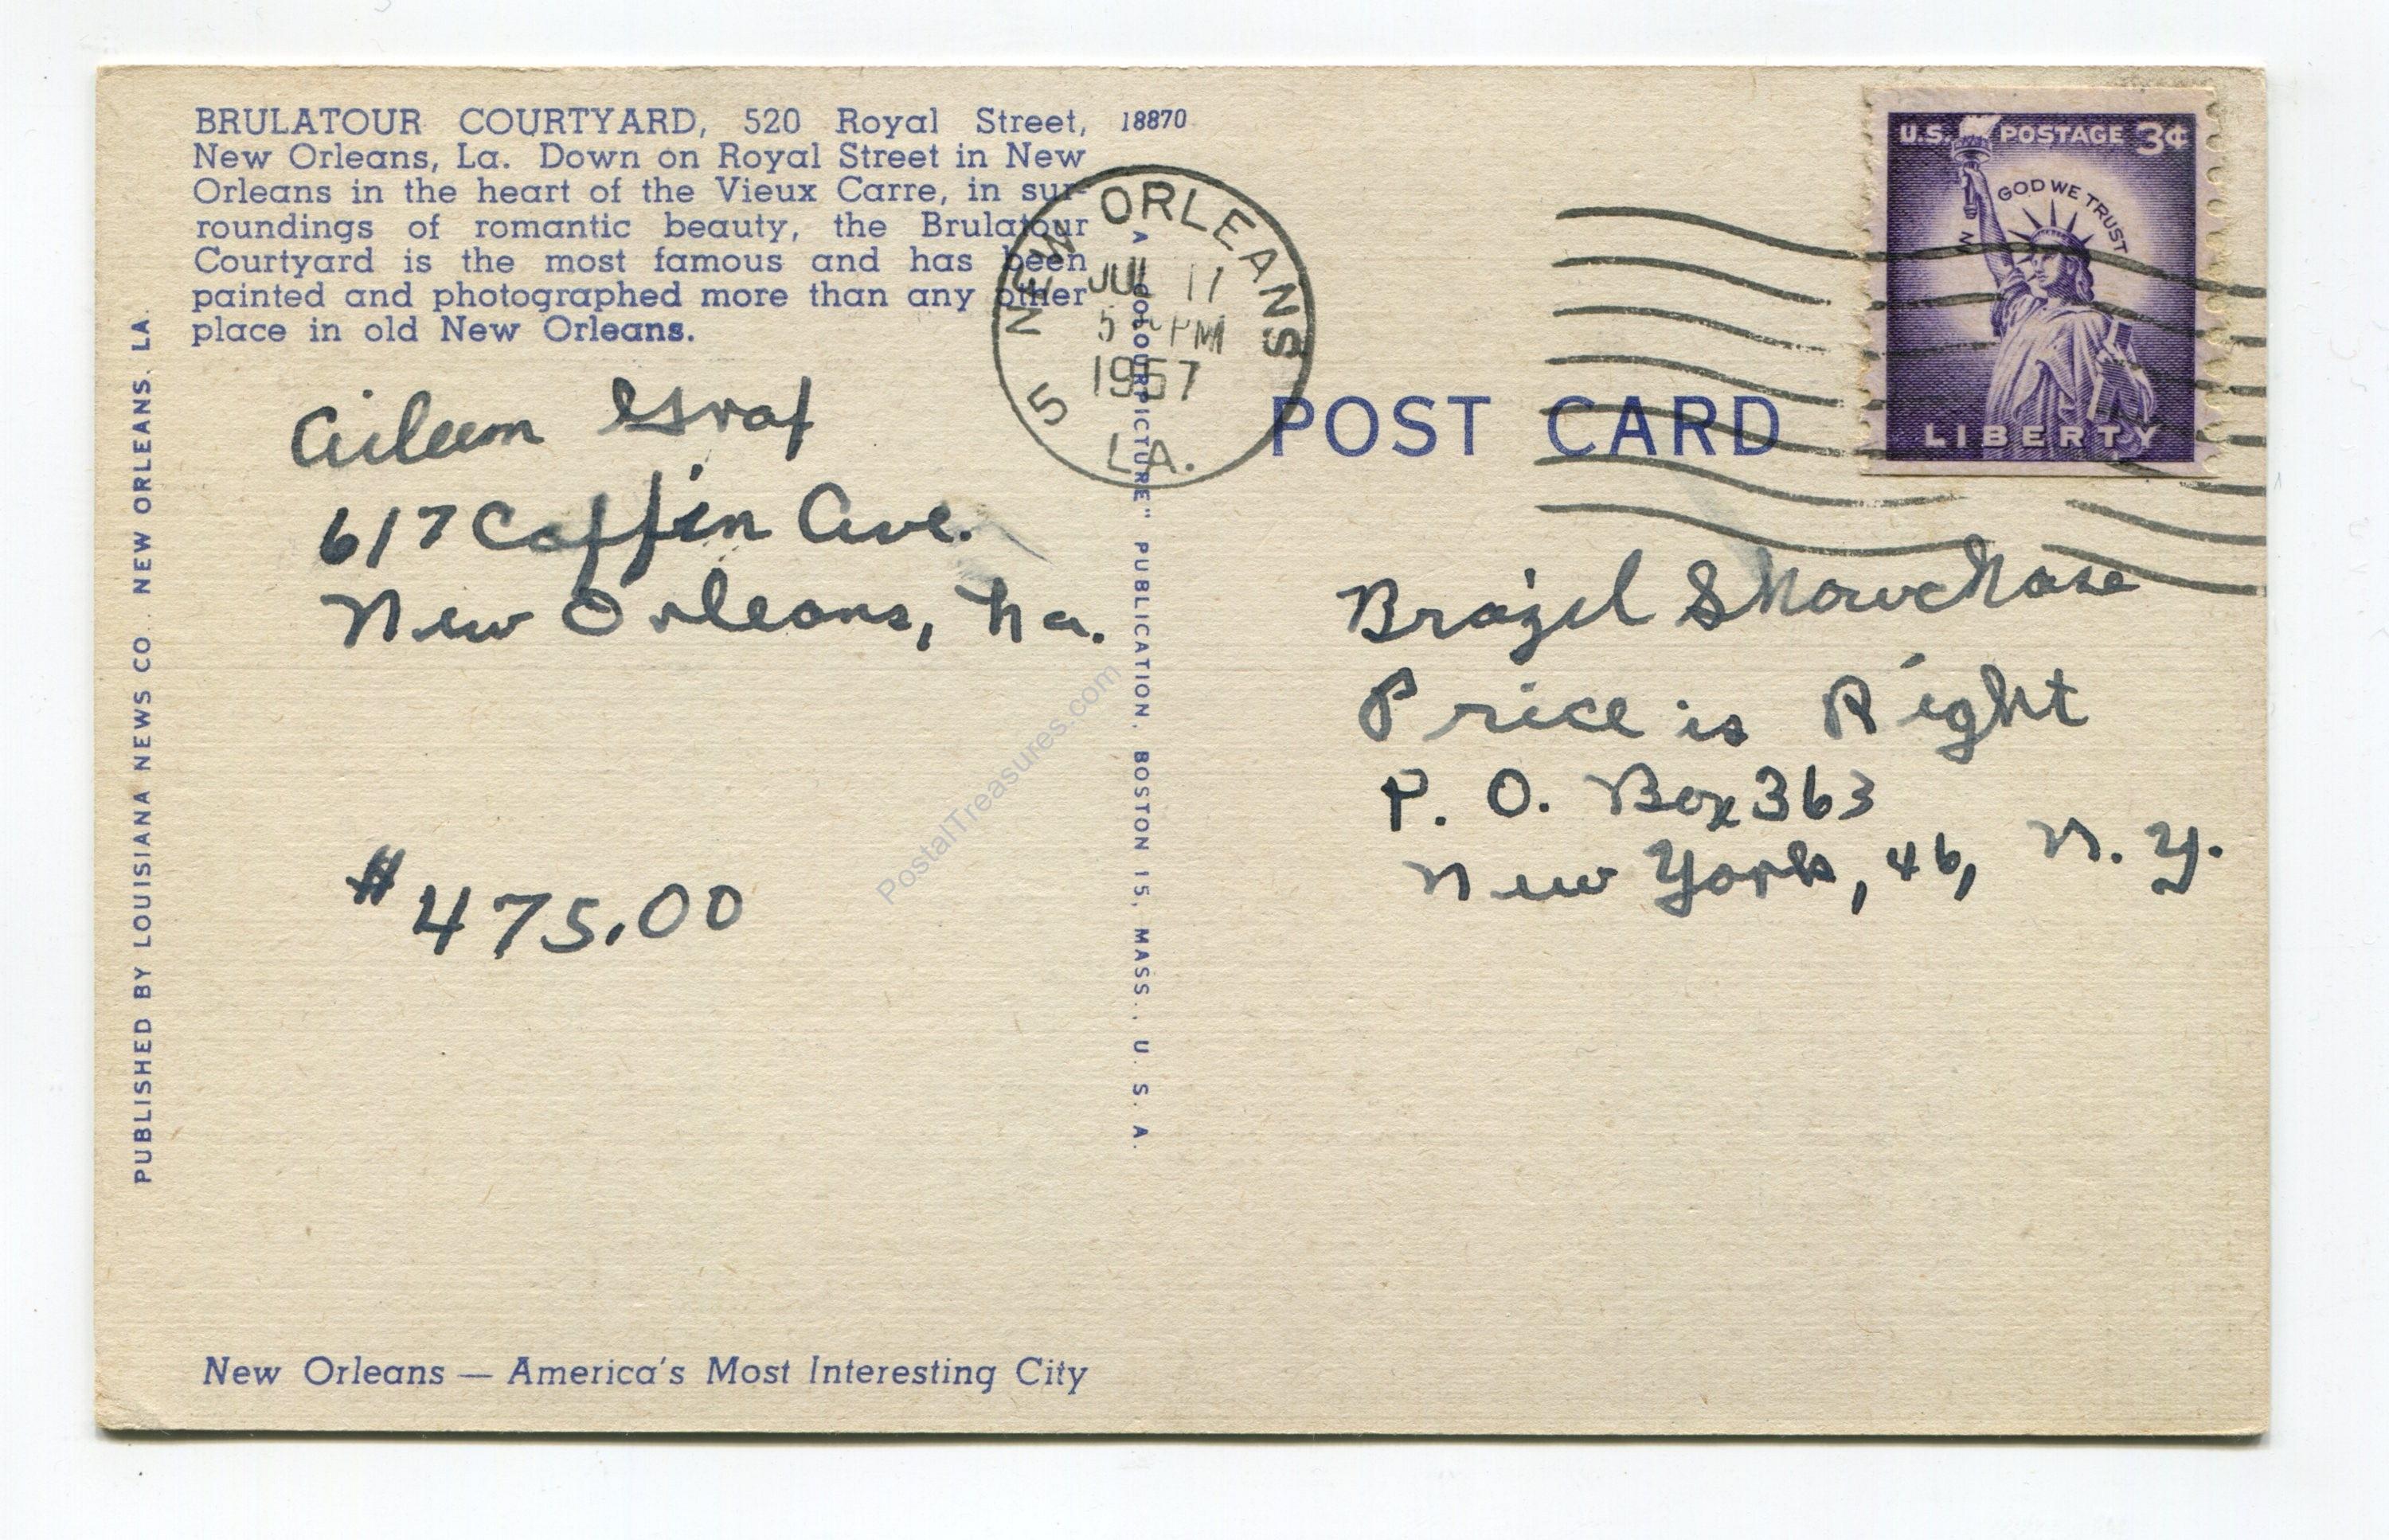 BRULATOUR COURTYARD, 520 Royal Street,
New Orleans, La. Down on Royal Street in New
Orleans in the heart of the Vieux Carre, in sur-
roundings of romantic beauty, the Brulatour
Courtyard is the most famous and has been
painted and photographed more than any other
place in old New Orleans.
18870
NEW ORLEANS
JUL 11
5 PM
1957
5
LA.
U.S. POSTAGE 3¢
IN GOD WE TRUST
LIBERTY
POST CARD
Aileen Graf
617 Coffin Ave.
New Orleans, La.
$475.00
Brazil Showchase
Price is Right
P. O. Box 363
New York, 46, N. Y.
PUBLISHED BY LOUISIANA NEWS CO. NEW ORLEANS, LA.
A "COLOURPICTURE" PUBLICATION, BOSTON 15, MASS., U. S. A.
PostalTreasures.com
New Orleans — America's Most Interesting City